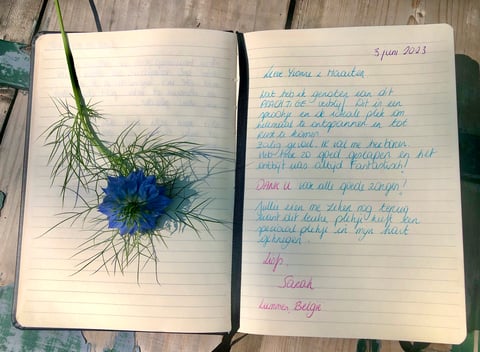 5 juni 2023
Lieve Yvonne & Maarten
Wat heb ik genoten van dit
verblijf. Dit is een
en de ideale plek om
helemaal te ontspannen en tot
rust te komen.
Zalig gevoel. Ik zal me herboren.
Heb hier zo goed geslapen en het
ontbijt was altijd fantastisch!
DANK U voor alle goede zorgen!
Jullie zien me zeker nog terug
want dit leuke plekje heeft een
speciaal plekje in mijn hart
gekregen.
Liefs,
Sarah
Lummen, België